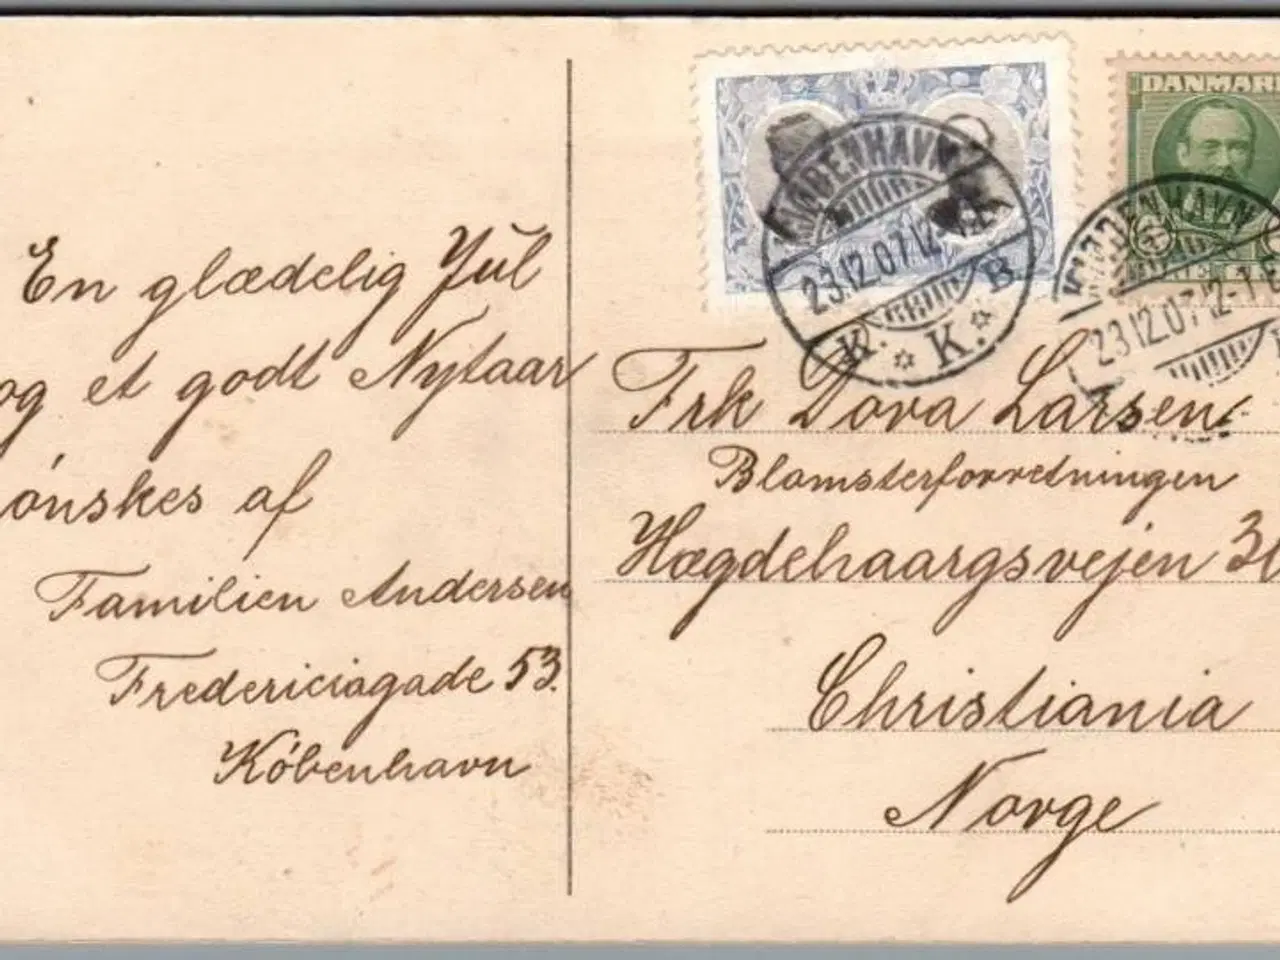 En glædelig Jul
og et godt Nytaar
ønskes af
Familien Andersen
Fredericiagade 53.
København
DANMARK
KJØBENHAVN
23.12.07.12-1.E
K. K. B
KJØBENHAVN
23.12.07.12-1.E
Frk Dora Larsen
Blomsterforretningen
Hægdehaargsvejen
Christiania
Norge